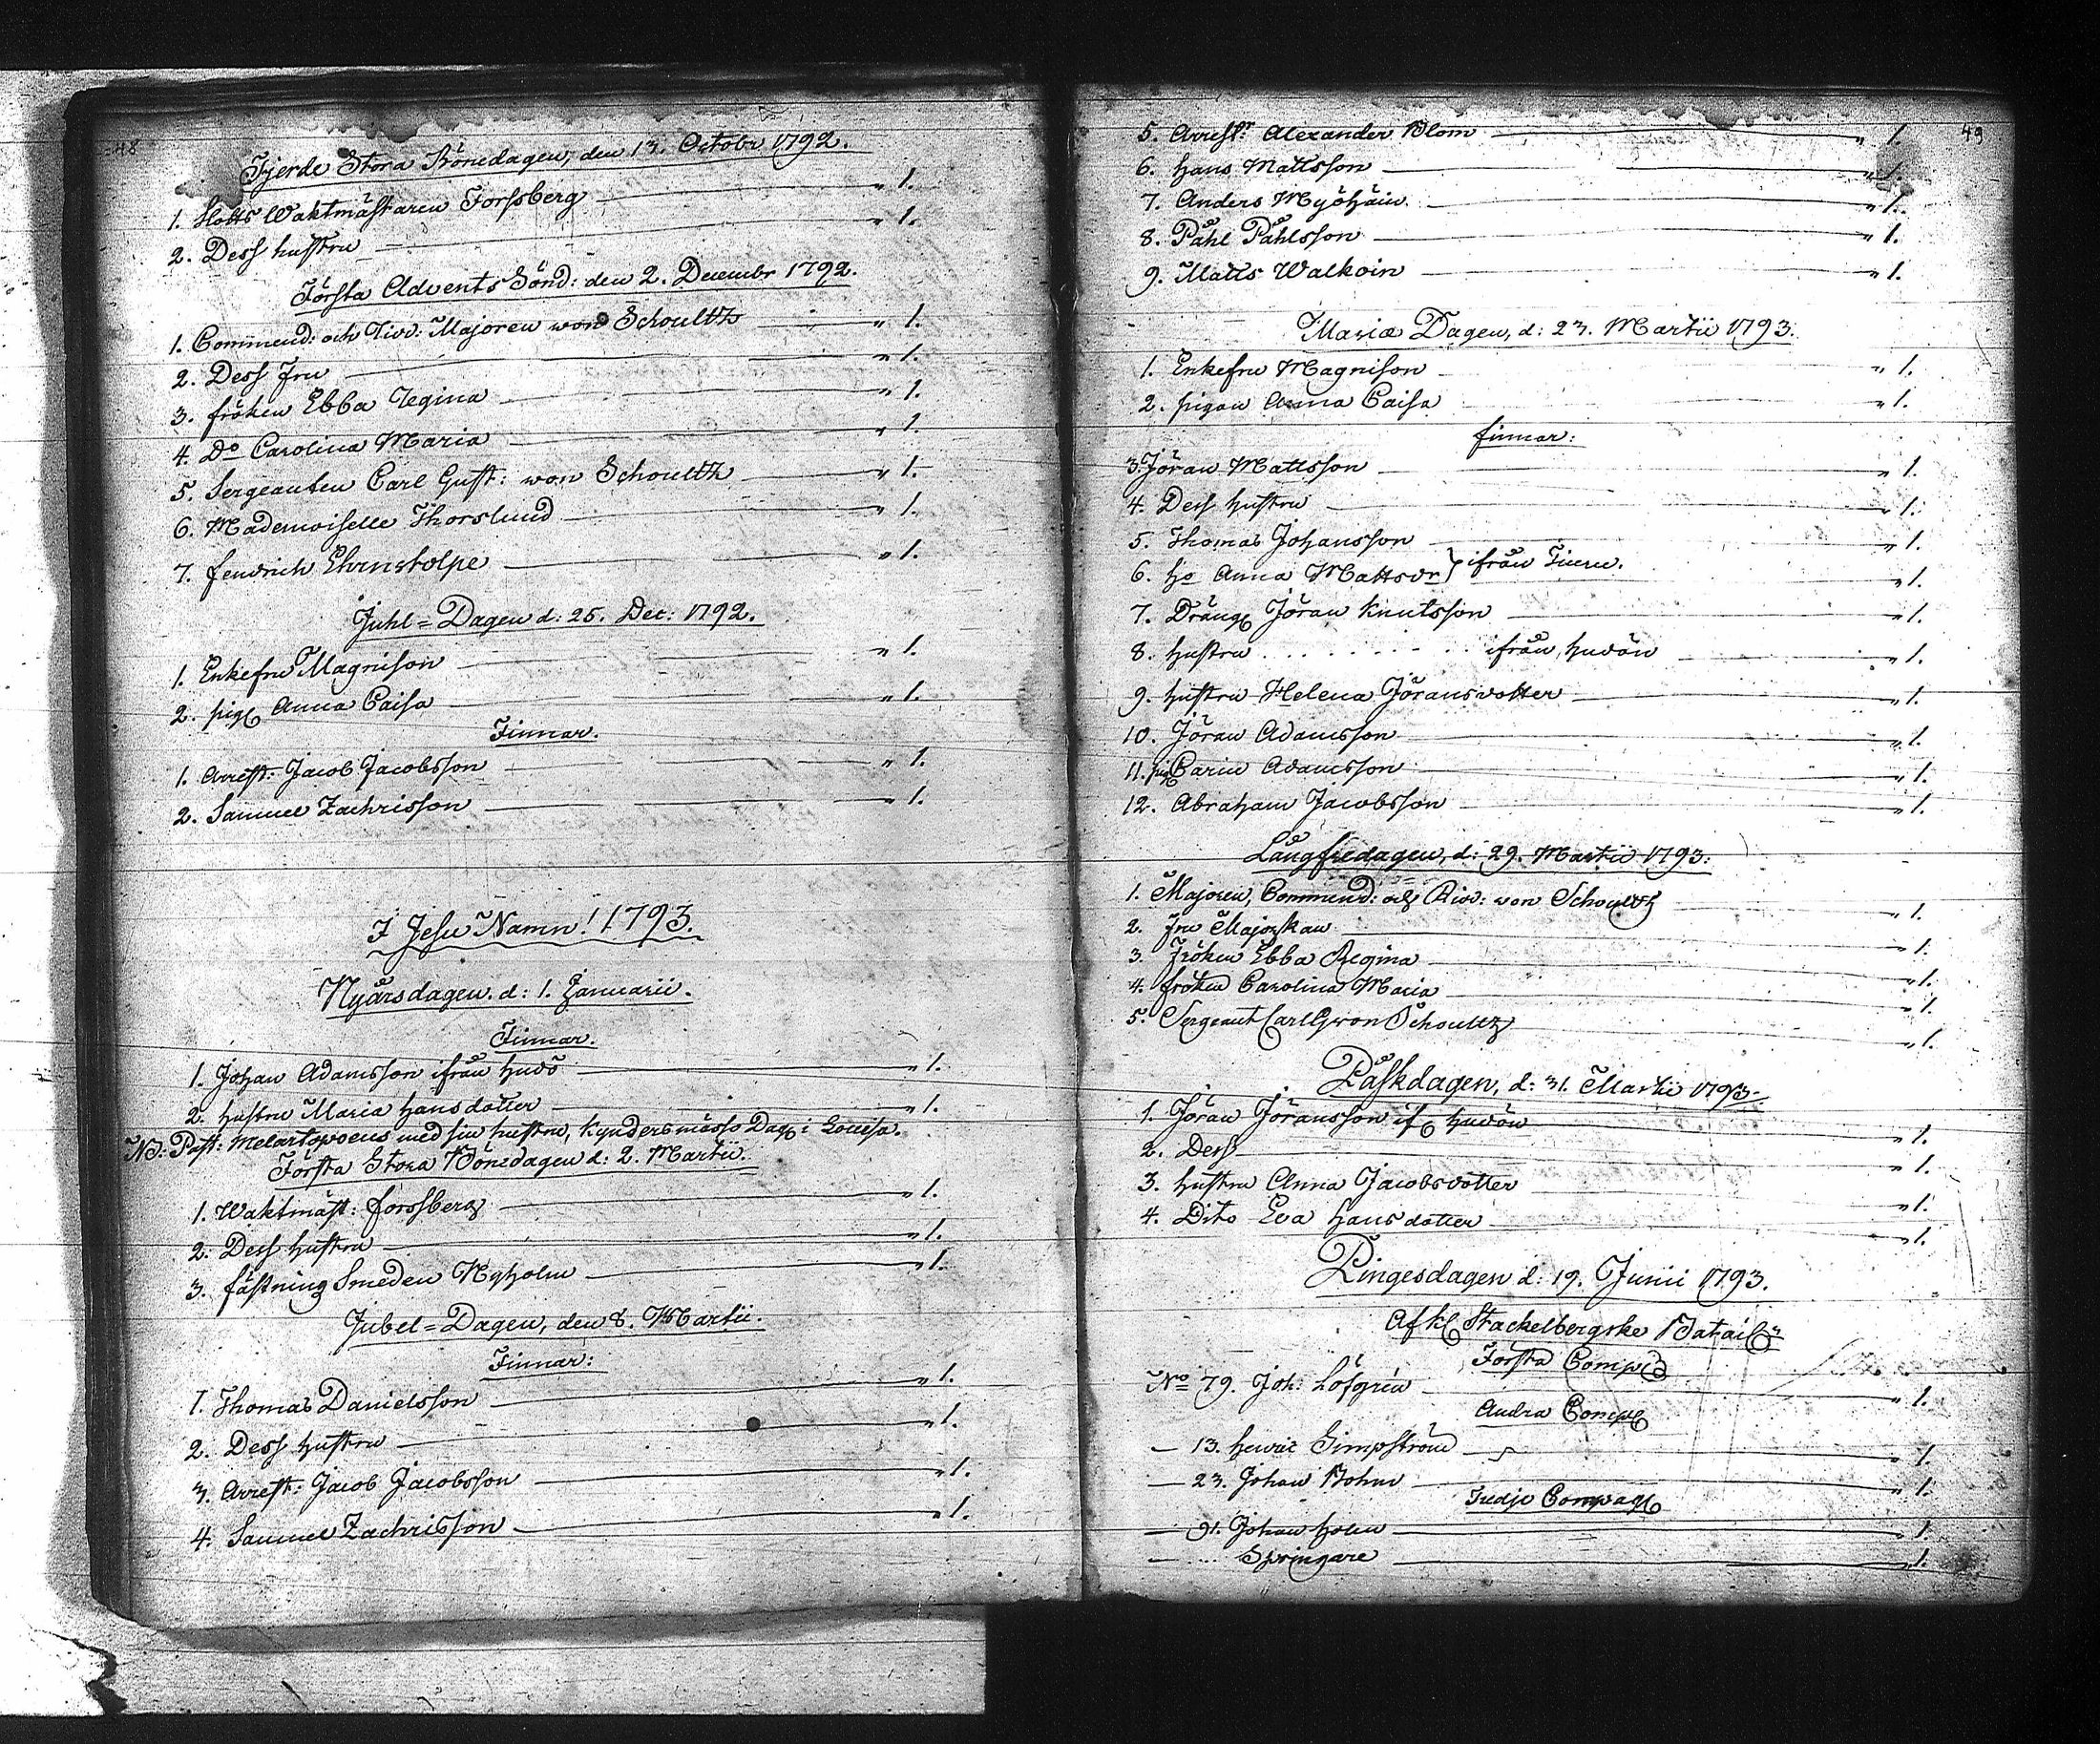 48
Fjerde Stora Bönedagen, den 13. Octobr 1792.
1. Slotts Waktmästaren Forssberg — " 1.
2. Dess hustru — " 1.
Första Advents Sönd: den 2. Decembr 1792.
1. Commend: och Tior: Majoren won Schoultz — " 1.
2. Dess Fru — " 1.
3. fröken Ebba Regina — " 1.
4. Do Carolina Maria — " 1.
5. Sergeanten Carl Gust: won Schoultz — " 1.
6. Mademoiselle Thorslund — " 1.
7. fendrich Ehrnstolpe — " 1.
Juhl=Dagen d: 25. Dec: 1792.
1. Enkefru Magnison — " 1.
2. pig. Anna Caisa — " 1.
Finnar.
1. Arrest: Jacob Jacobsson — " 1.
2. Samuel Zachrisson — " 1.
I Jesu Namn! 1793.
Nyårsdagen. d: 1. Januarii.
Finnar.
1. Johan Adamsson ifrån Hudö — " 1.
2. hustru Maria Hansdotter — " 1.
NB: Past: Melartopoeus med sin hustru, Kyndersmässo Dag. i Lovisa.
Första Stora Bönedagen d: 2. Martii.
1. Waktmäst: forssberg — " 1.
2. Dess hustru — " 1.
3. fästning Smeden Nyholm — " 1.
Jubel=Dagen, den 8. Martii.
Finnar:
1. Thomas Danielsson — " 1.
2. Dess hustru — " 1.
3. Arrest: Jacob Jacobsson — " 1.
4. Samuel Zachrisson — " 1.
49
5. Arrestr: Alexander Blom — " 1.
6. Hans Mattsson — " 1.
7. Anders Myöhäin — " 1.
8. Påhl Påhlsson — " 1.
9. Matts Walkoin — " 1.
Mariæ Dagen, d: 23. Martii 1793.
1. Enkefru Magnison — " 1.
2. pigan Anna Caisa — " 1.
finnar:
3. Jöran Mattsson — " 1.
4. Dess hustru — " 1.
5. Thomas Johansson — " 1.
6. Ho Anna Mattsdr } ifrån — " 1.
7. Dräng. Jöran Knutsson — " 1.
8. hustru . . . . . . . . ifrån Hudön — " 1.
9. hustru Helena Jöransdotter — " 1.
10. Jöran Adamsson — " 1.
11. pig. Carin Adamsson — " 1.
12. Abraham Jacobsson — " 1.
Långfredagen, d: 29. Martii 1793.
1. Majoren, Commend: och Rid: von Schoultz — " 1.
2. Fru Majorskan — " 1.
3. Fröken Ebba Regina — " 1.
4. fröken Carolina Maria — " 1.
5. Sergeant Carl G von Schoultz — " 1.
Påskdagen, d: 31. Martii 1793.
1. Jöran Jöransson if. Hudön — " 1.
2. Dess — " 1.
3. hustru Anna Jacobsdotter — " 1.
4. Dito Eva Hansdotter — " 1.
Pingesdagen d: 19. Junii 1793.
Af Kl. Stackelbergske Batailn
Första Comp.
No 79. Joh: Löfgren — " 1.
Andra Comp.
— 13. Henric Gimpström — " 1.
— 23. Johan Bohm — " 1.
Tredje Compag.
— 91. Johan Holm — 1.
— ... Springare — " 1.